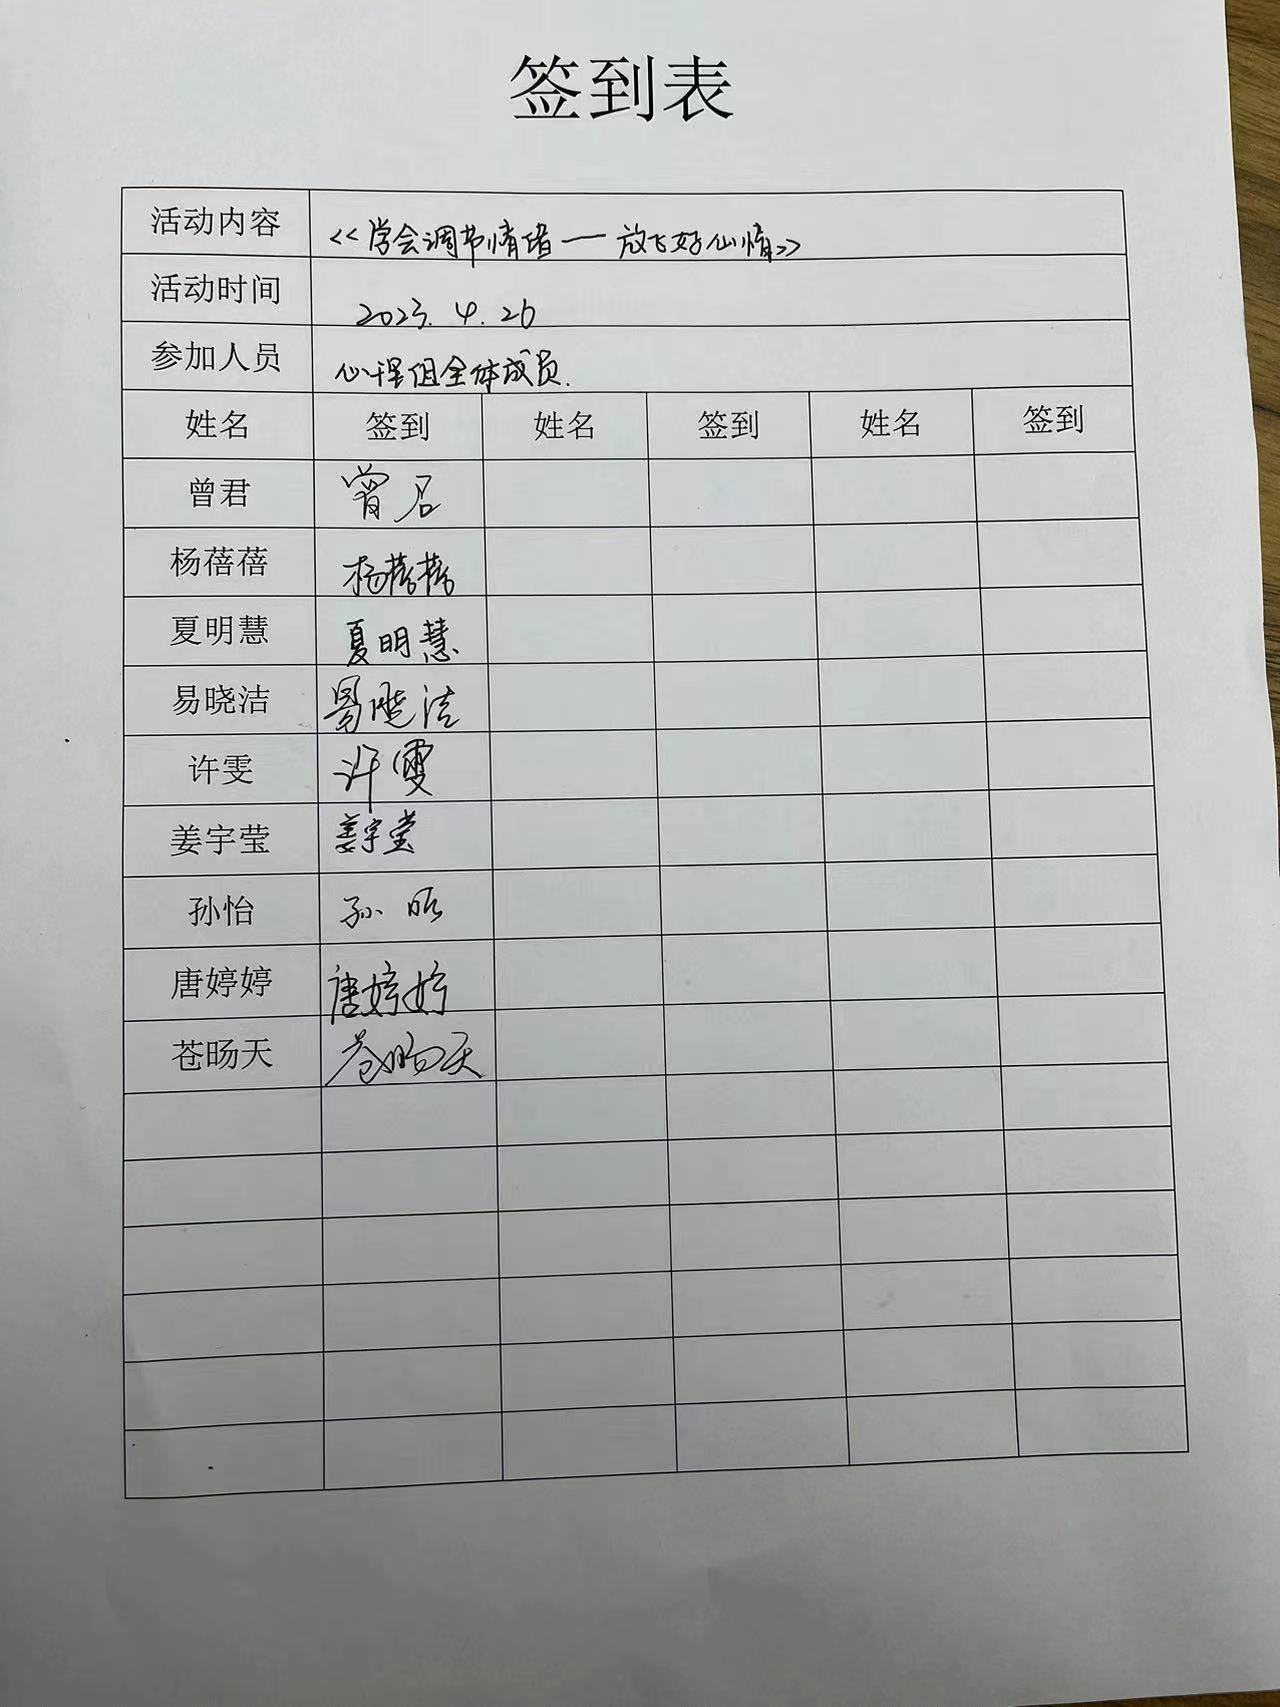 签到表
活动内容 <<学会调节情绪——放飞好心情>>
活动时间 2023.4.26
参加人员 心理组全体成员.
姓名 签到 姓名 签到 姓名 签到
曾君 曾君
杨蓓蓓 杨蓓蓓
夏明慧 夏明慧
易晓洁 易晓洁
许雯 许雯
姜宇莹 姜宇莹
孙怡 孙怡
唐婷婷 唐婷婷
苍旸天 苍旸天